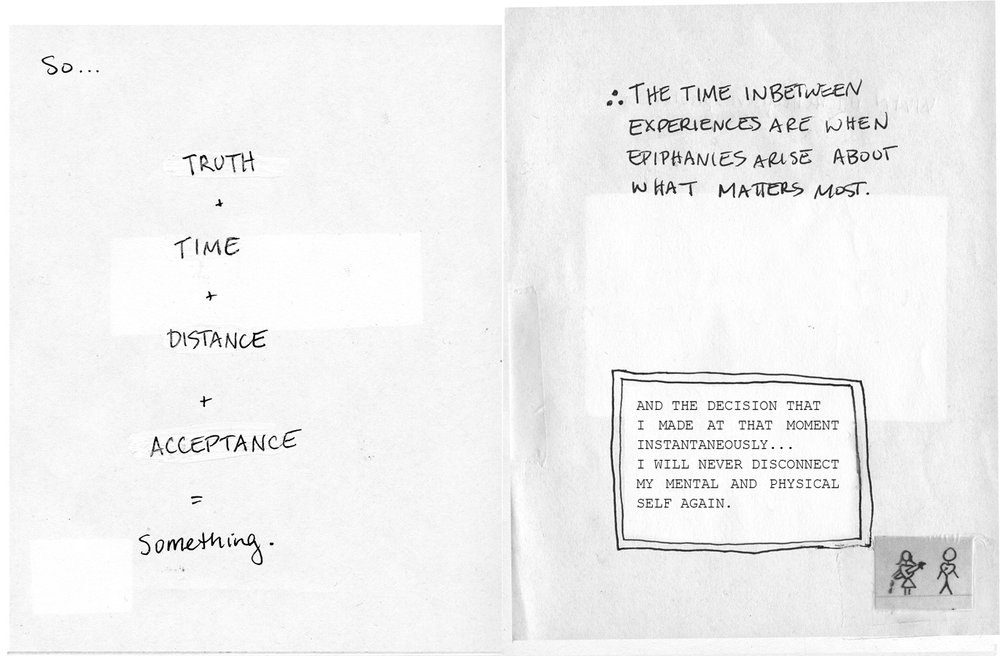 So...
TRUTH
+
TIME
+
DISTANCE
+
ACCEPTANCE
=
Something.
∴ THE TIME INBETWEEN
EXPERIENCES ARE WHEN
EPIPHANIES ARISE ABOUT
WHAT MATTERS MOST.
AND THE DECISION THAT
I MADE AT THAT MOMENT
INSTANTANEOUSLY...
I WILL NEVER DISCONNECT
MY MENTAL AND PHYSICAL
SELF AGAIN.